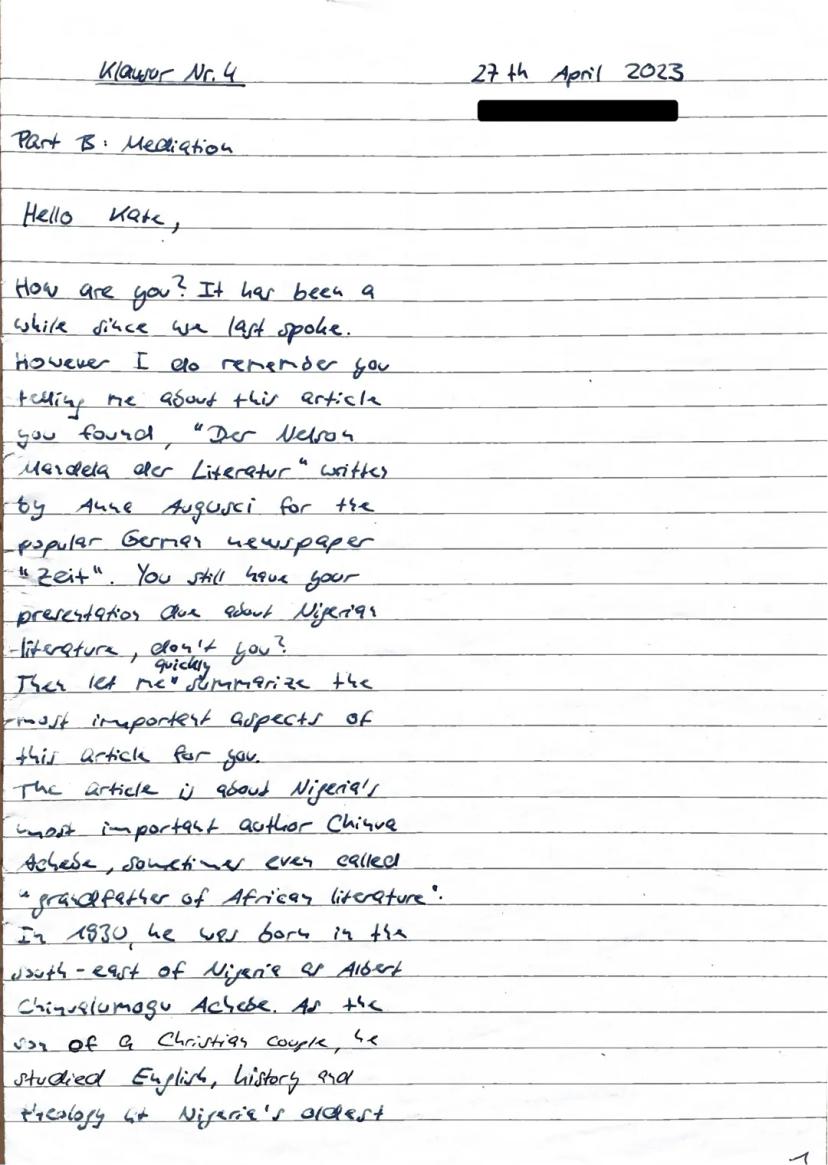 Klausur Nr. 4
27th April 2023
Part B: Mediation
Hello Kate,
How are you? It has been a
while since we last spoke.
However I do remember you
telling me about this article
you found, "Der Nelson
Mandela der Literatur" written
by Anna Augusci for the
popular German newspaper
"Zeit". You still have your
presentation due about Nigerian
literature, don't you?
quickly
Then let me" summarize the
most important aspects of
this article for you.
The article is about Nigeria's
most important author Chinua
Achebe, sometimes even called
"grandfather of African literature".
In 1930, he was born in the
south-east of Nigeria as Albert
Chinualumogu Achebe. As the
son of a Christian couple, he
studied English, history and
theology at Nigeria's oldest
1